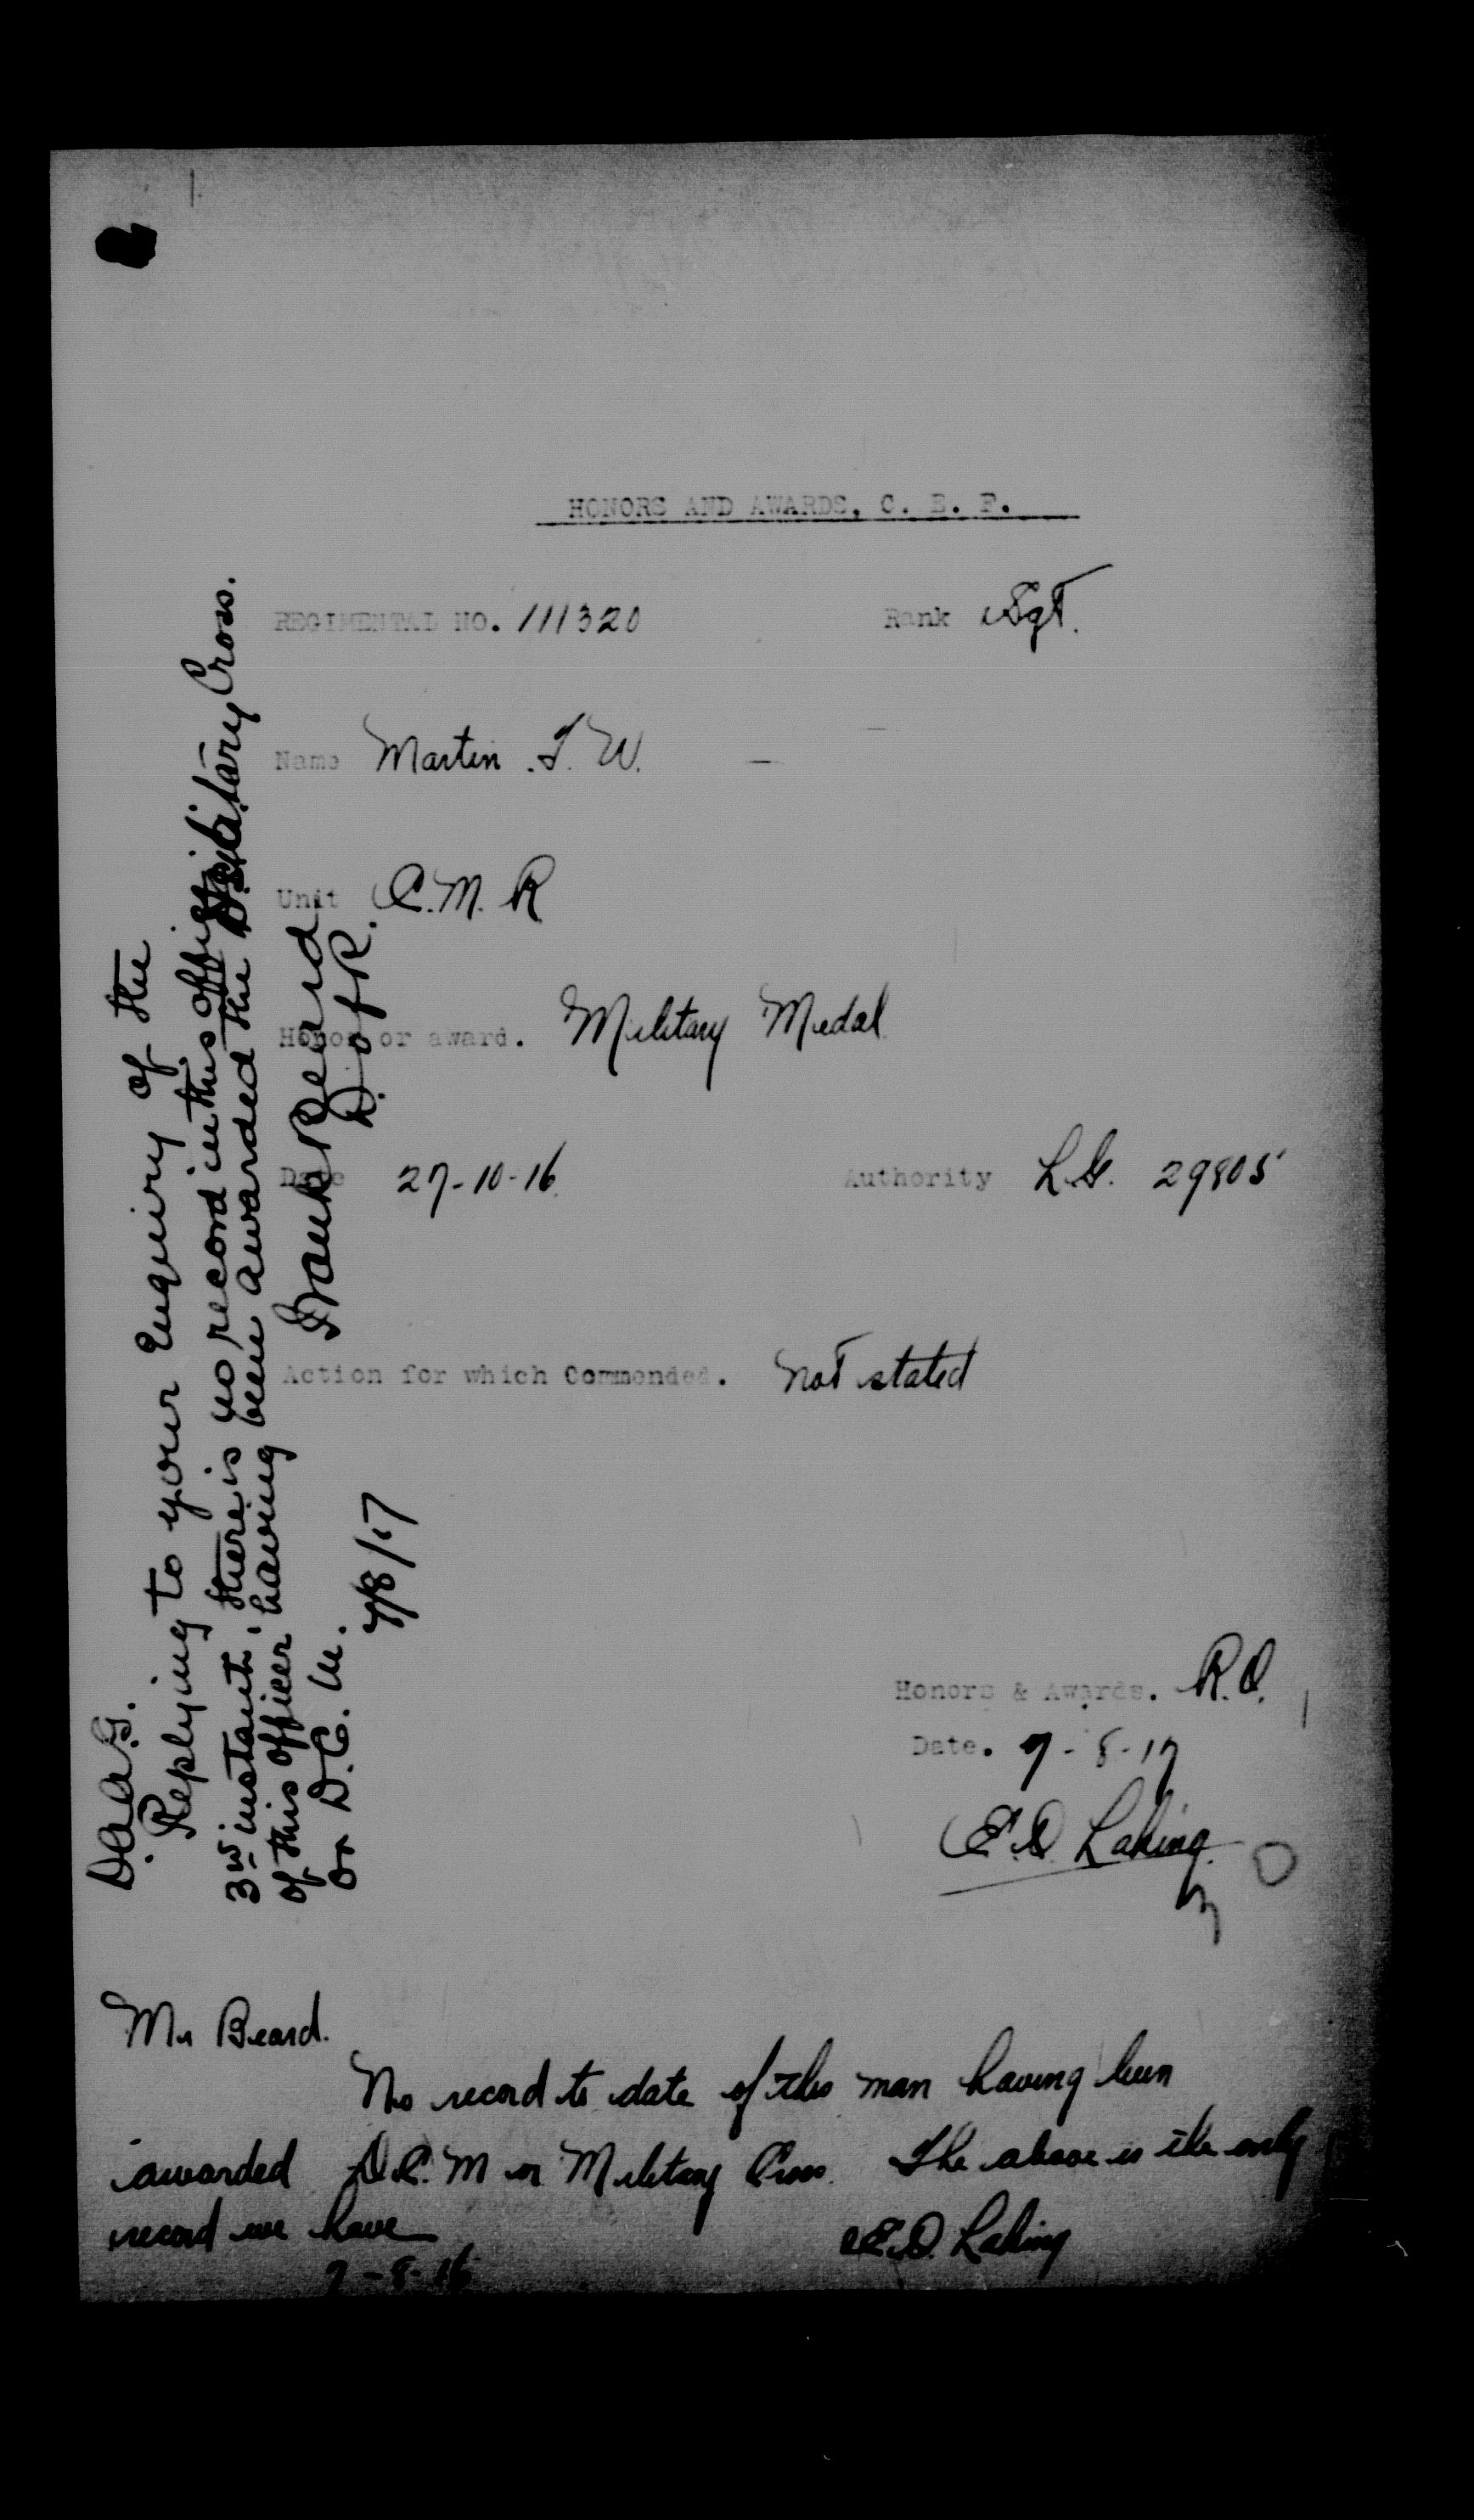 HONORS AND AWARDS, C. E. F.
REGIMENTAL NO. 111320 Rank Sgt.
Name Martin . T. W.
Unit C. M. R.
Honor or award. Military Medal.
Date 27-10-16. Authority L.G. 29805
Action for which Commended. Not stated
Honors & Awards. R.O.
Date. 7-8-17
E.O. Laking.
D.A.A.G.
Replying to your Enquiry of the
3rd instant, there is no record in this office
of this officer having been awarded the Military Cross.
or D.C.M.
Frank Beard
D. of R.
7/8/17
Mr Beard.
No record to date of this man having been
awarded D.C.M or Military Cross. The above is the only
record we have
E.O. Laking
7-8-16